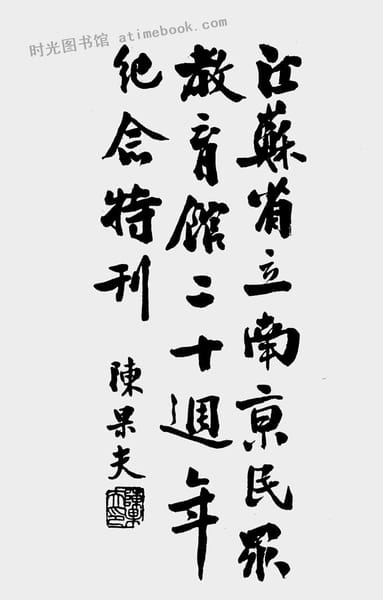 时光图书馆 atimebook.com
江蘇省立南京民眾
教育館二十週年
紀念特刊
陳果夫